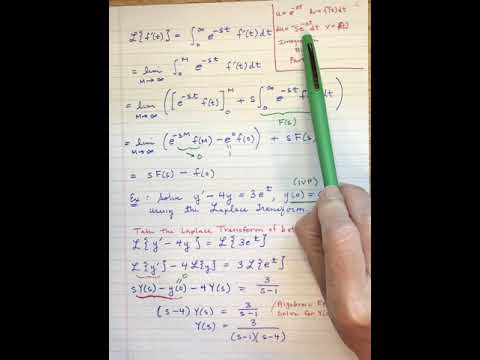 ℒ{f'(t)} = ∫₀^∞ e^{-st} f'(t) dt
u = e^{-st} dv = f'(t)dt
du = -se^{-st} dt v = f(t)
= lim_{M→∞} ∫₀^M e^{-st} f'(t) dt
= lim_{M→∞} ([e^{-st} f(t)]₀^M + s∫₀^∞ e^{-st} dt
F(s)
= lim_{M→∞} (e^{-sM} f(M) - e^0 f(0)) + s F(s)
0 1
= s F(s) - f(0)
(IVP)
Ex: Solve y' - 4y = 3e^t, y(0) =
using the Laplace Transform
Take the Laplace Transform of
ℒ{y' - 4y} = ℒ{3e^t}
ℒ{y'} - 4ℒ{y} = 3ℒ{e^t}
0
sY(s) - y(0) - 4Y(s) = 3/(s-1)
(s-4) Y(s) = 3/(s-1)
Algebraic
Solve for
Y(s) = 3/((s-1)(s-4))